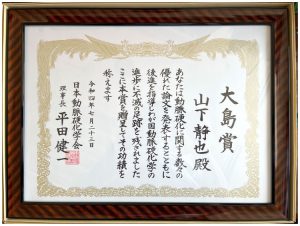 大島賞
山下静也 殿
あなたは動脈硬化に関する数々の
優れた論文を発表するとともに
後進を指導しわが国動脈硬化学の
進歩に不滅の足跡を残されました
ここに本賞を贈呈してその功績を
称えます
令和四年七月二十三日
日本動脈硬化学会
理事長 平田健一